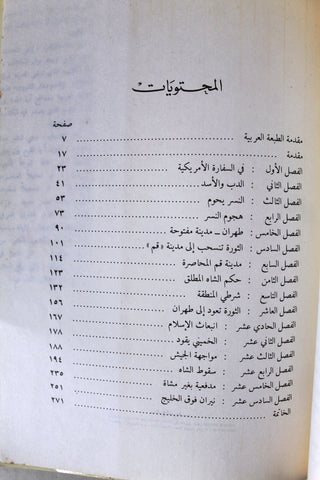 المحتويات
صفحة
مقدمة الطبعة العربية ٧
مقدمة ١٧
الفصل الأول : في السفارة الأمريكية ٢٣
الفصل الثاني : الدب والأسد ٤١
الفصل الثالث : النسر يحوم ٥٣
الفصل الرابع : هجوم النسر ٧٣
الفصل الخامس : طهران - مدينة مفتوحة ٩٠
الفصل السادس : الثورة تنسحب إلى مدينة « قم » ١٠١
الفصل السابع : مدينة قم المحاصرة ١١٤
الفصل الثامن : حكم الشاه المطلق ١٢٣
الفصل التاسع : شرطي المنطقة ١٣٢
الفصل العاشر : الثورة تعود إلى طهران ١٥٦
الفصل الحادي عشر : انبعاث الإسلام ١٦٧
الفصل الثاني عشر : الخميني يقود ١٧٨
الفصل الثالث عشر : مواجهة الجيش ١٨٨
الفصل الرابع عشر : سقوط الشاه ١٩٤
الفصل الخامس عشر : مدفعية بغير مشاة ٢٣٥
الفصل السادس عشر : نيران فوق الخليج ٢٥١
الخاتمة ٢٧١